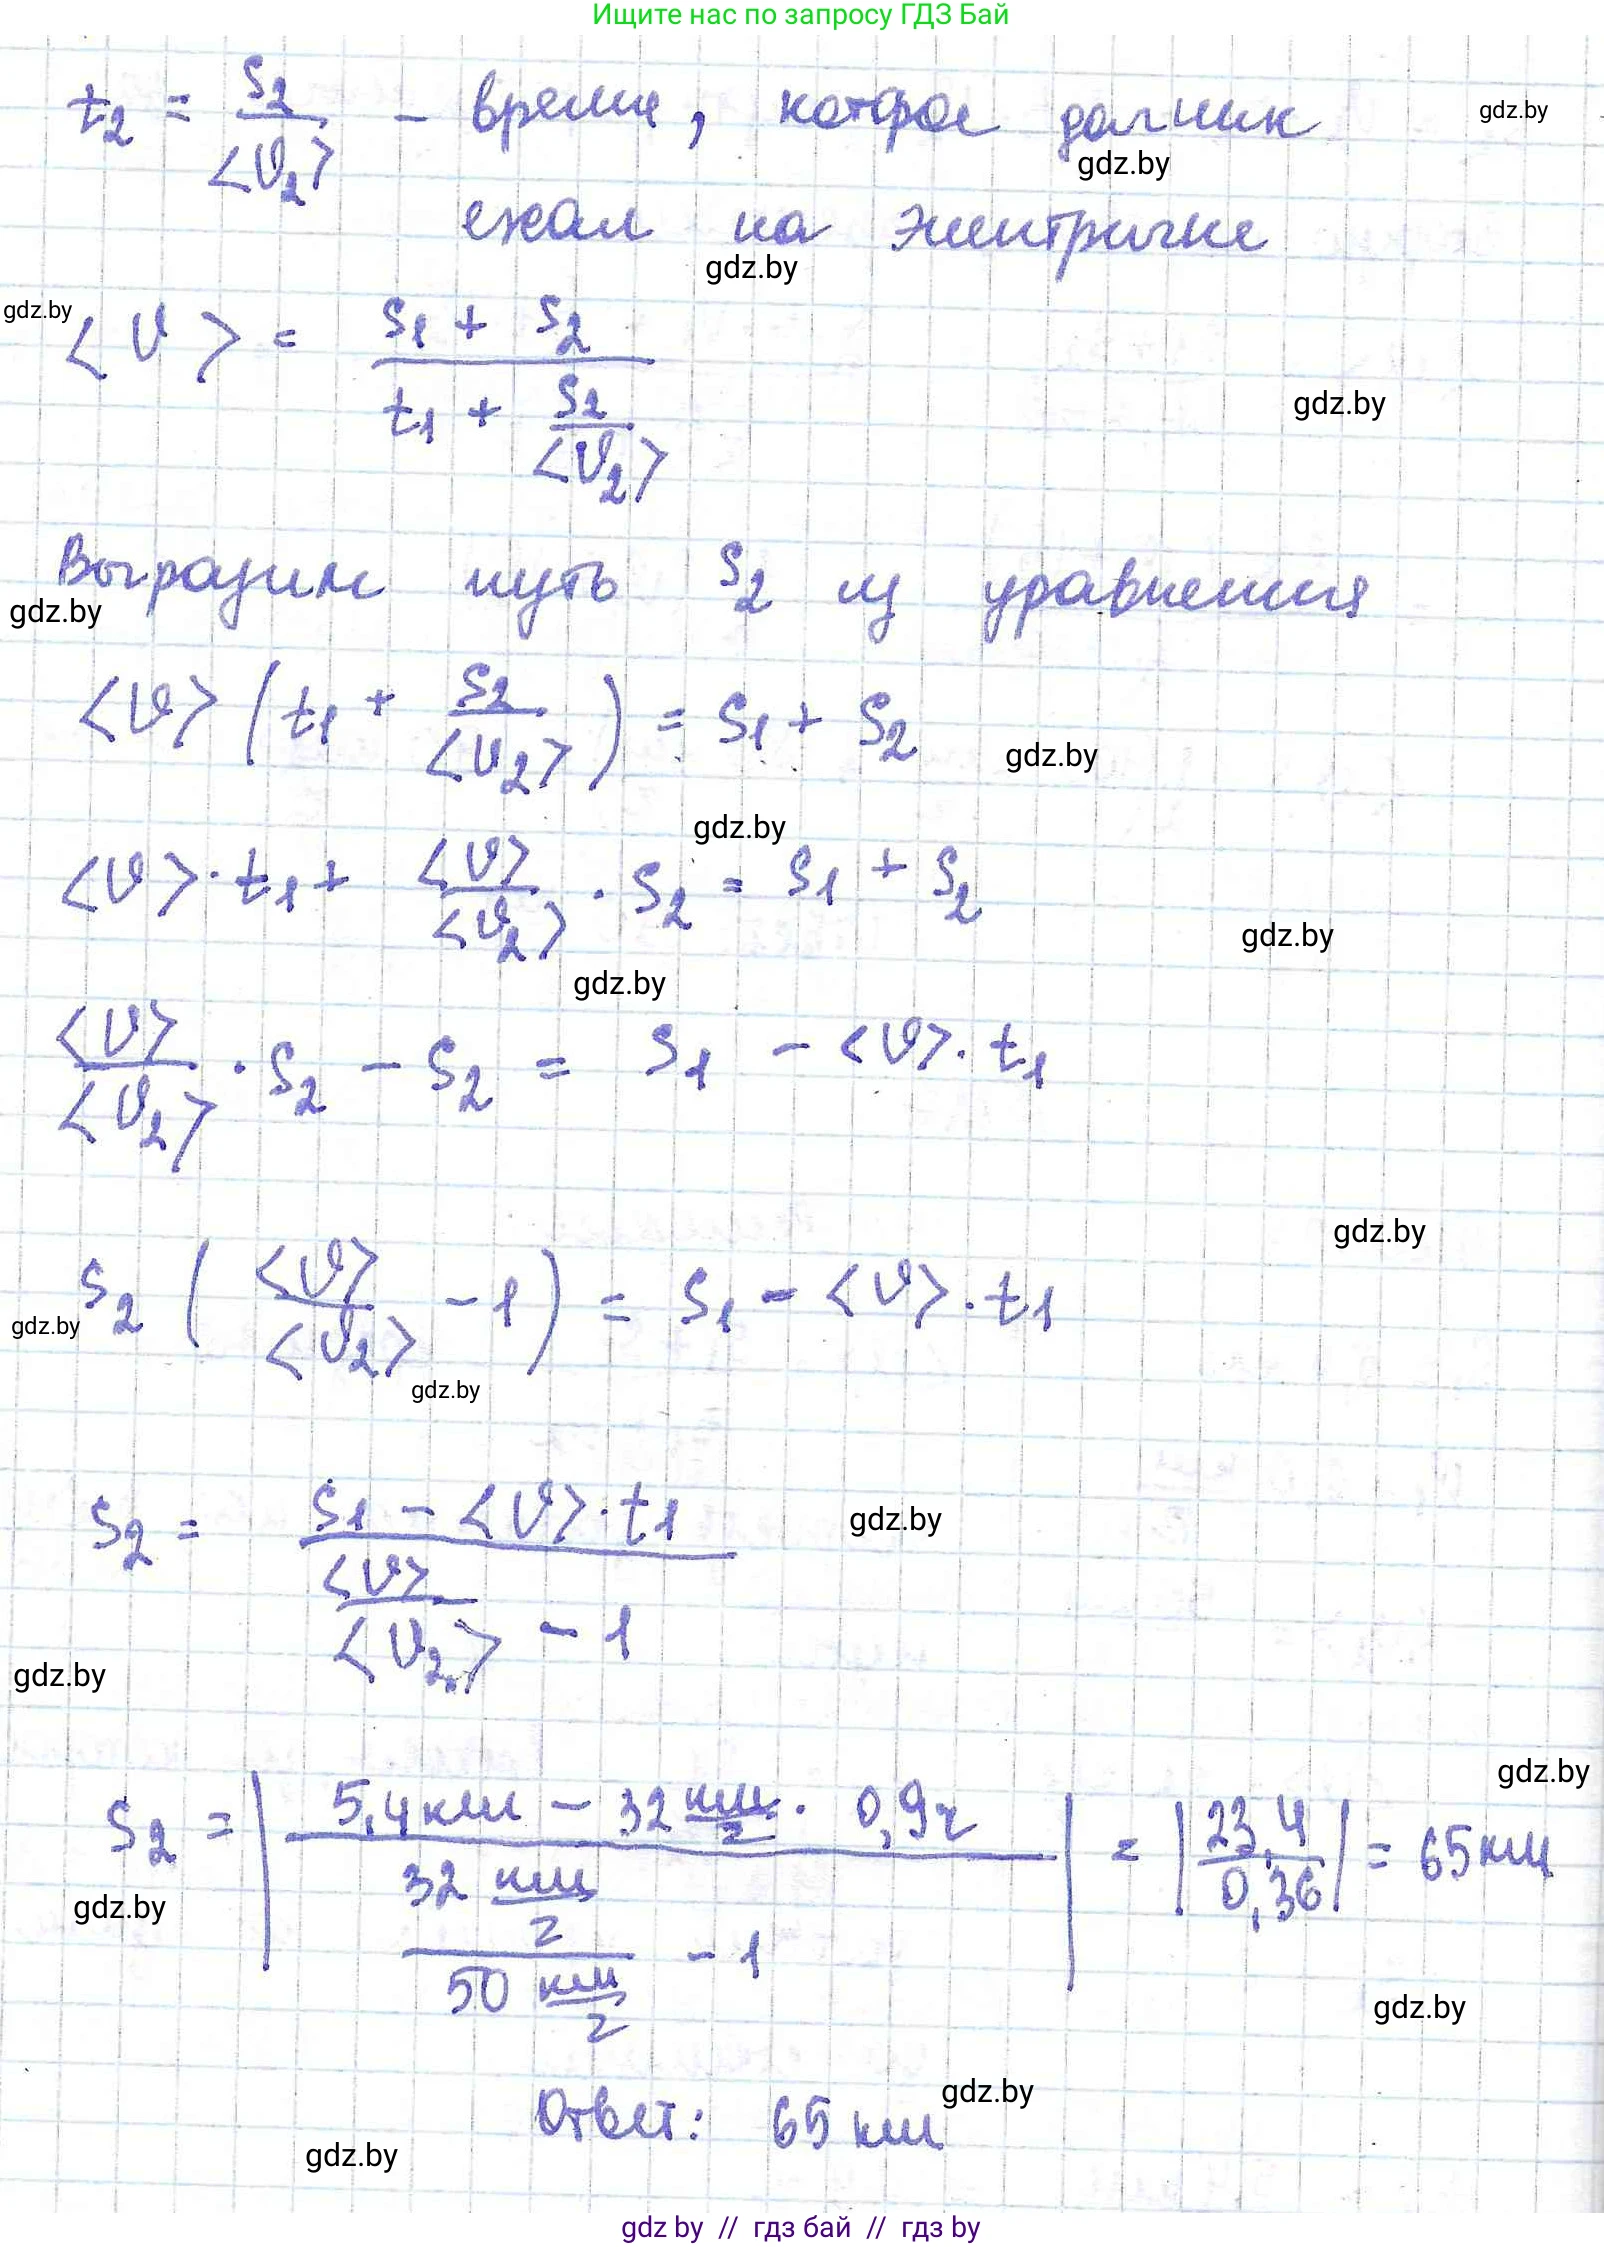 Ищите нас по запросу ГДЗ Бай
t₂ = s₂/<υ₂> - время, которое дачник
gdz.by
gdz.by
ехал на электричке
gdz.by
gdz.by
<υ> = (s₁ + s₂)/(t₁ + s₂/<υ₂>)
gdz.by
Выразим путь s₂ из уравнения
gdz.by
<υ> (t₁ + s₂/<υ₂>) = s₁ + s₂
gdz.by
gdz.by
<υ> · t₁ + <υ>/<υ₂> · s₂ = s₁ + s₂
gdz.by
gdz.by
<υ>/<υ₂> · s₂ - s₂ = s₁ - <υ> · t₁
gdz.by
s₂ (<υ>/<υ₂> - 1) = s₁ - <υ> · t₁
gdz.by
gdz.by
s₂ = (s₁ - <υ> · t₁)/(<υ>/<υ₂> - 1)
gdz.by
gdz.by
gdz.by
s₂ = |(5,4 км - 32 км/ч · 0,9 ч)/((32 км/ч)/(50 км/ч) - 1)| = |23,4/0,36| = 65 км
gdz.by
gdz.by
Ответ: 65 км
gdz.by
gdz.by
gdz by // гдз бай // гдз by